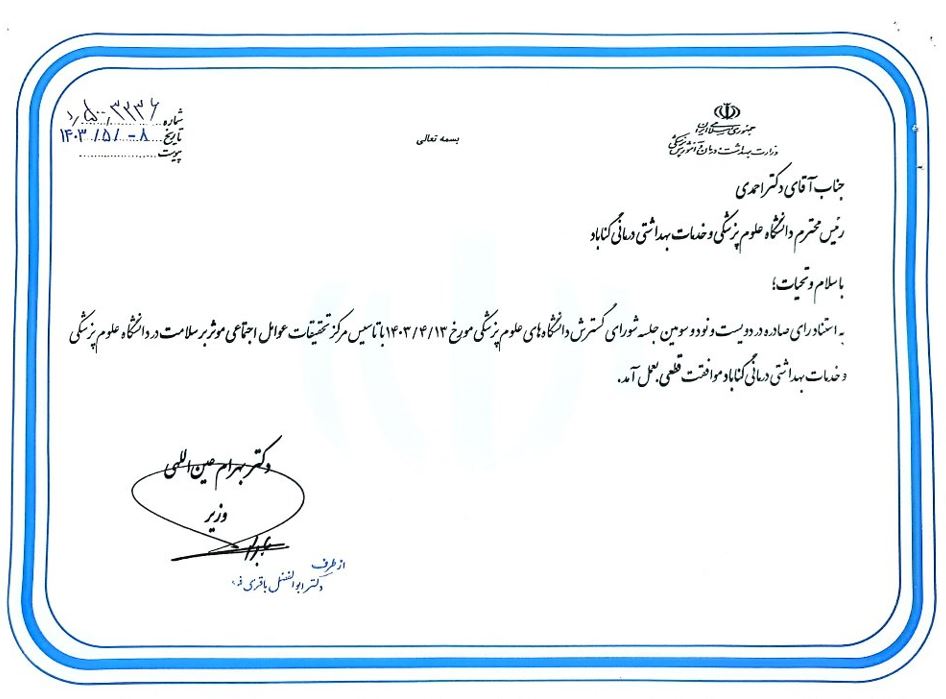 جمهوری اسلامی ایران
وزارت بهداشت، درمان و آموزش پزشکی
بسمه تعالی
شماره ۵۰۰/۳۲۳۶/د
تاریخ ۱۴۰۳/۵/۰۸
پیوست
جناب آقای دکتر احمدی
رئیس محترم دانشگاه علوم پزشکی و خدمات بهداشتی درمانی گناباد
با سلام و تحیات؛
به استناد رای صادره در دویست و نود و سومین جلسه شورای گسترش دانشگاه های علوم پزشکی مورخ ۱۴۰۳/۴/۱۳ با تاسیس مرکز تحقیقات عوامل اجتماعی موثر بر سلامت در دانشگاه علوم پزشکی
و خدمات بهداشتی درمانی گناباد موافقت قطعی بعمل آمد.
دکتر بهرام عین اللهی
وزیر
از طرف
دکتر ابوالفضل باقری فرد